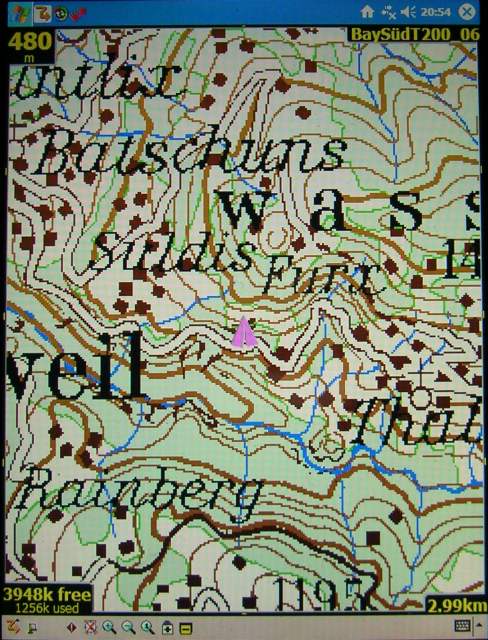 20:54
480
m
BaySüdT200_06
Batschuns
w a s s
Suldis
Furx
veil
Thal
Rainberg
1195
3948k free
1256k used
2,99km